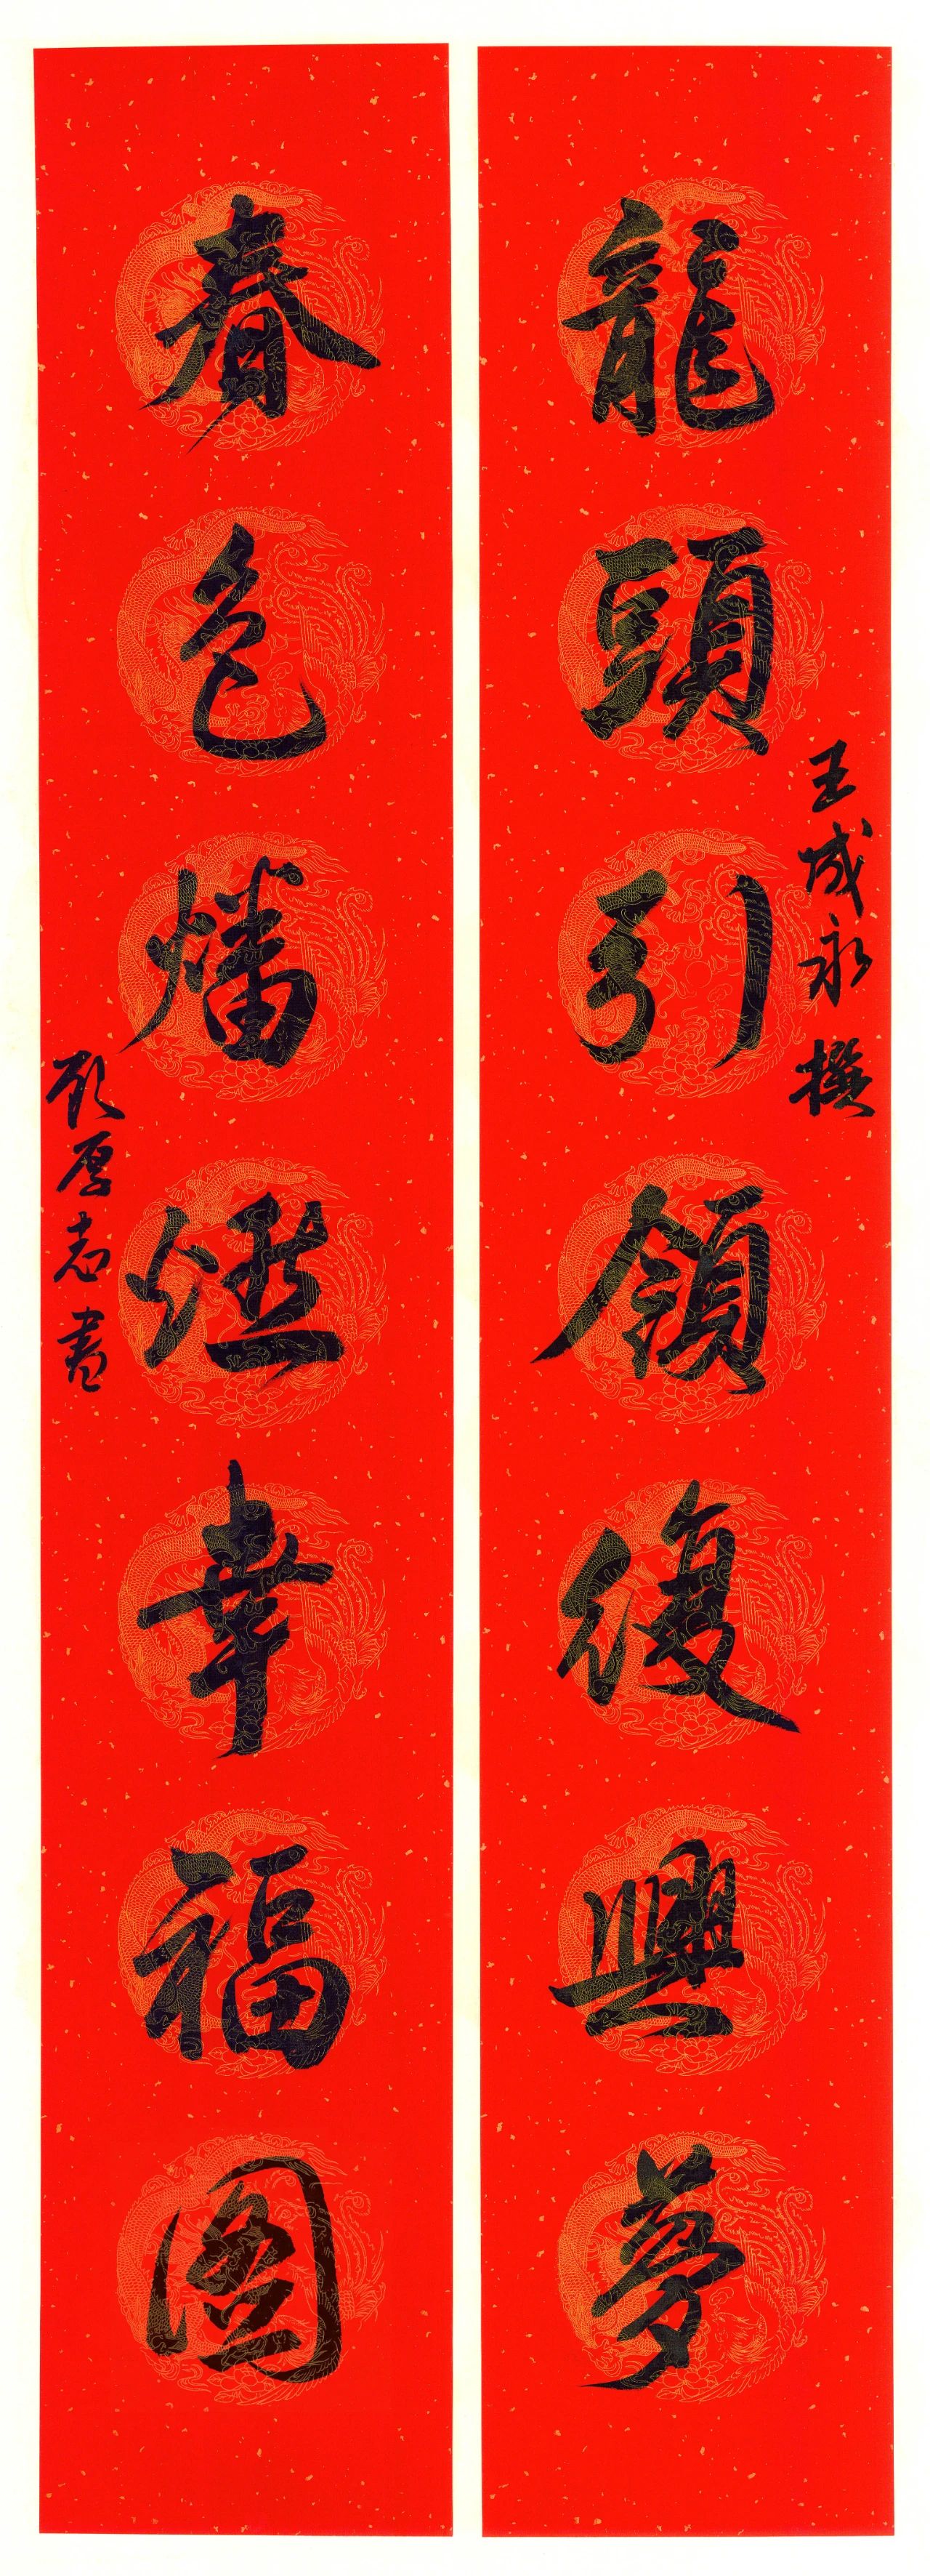 龍頭引領復興夢
王成永撰
春色燔幸福圖
厚志書